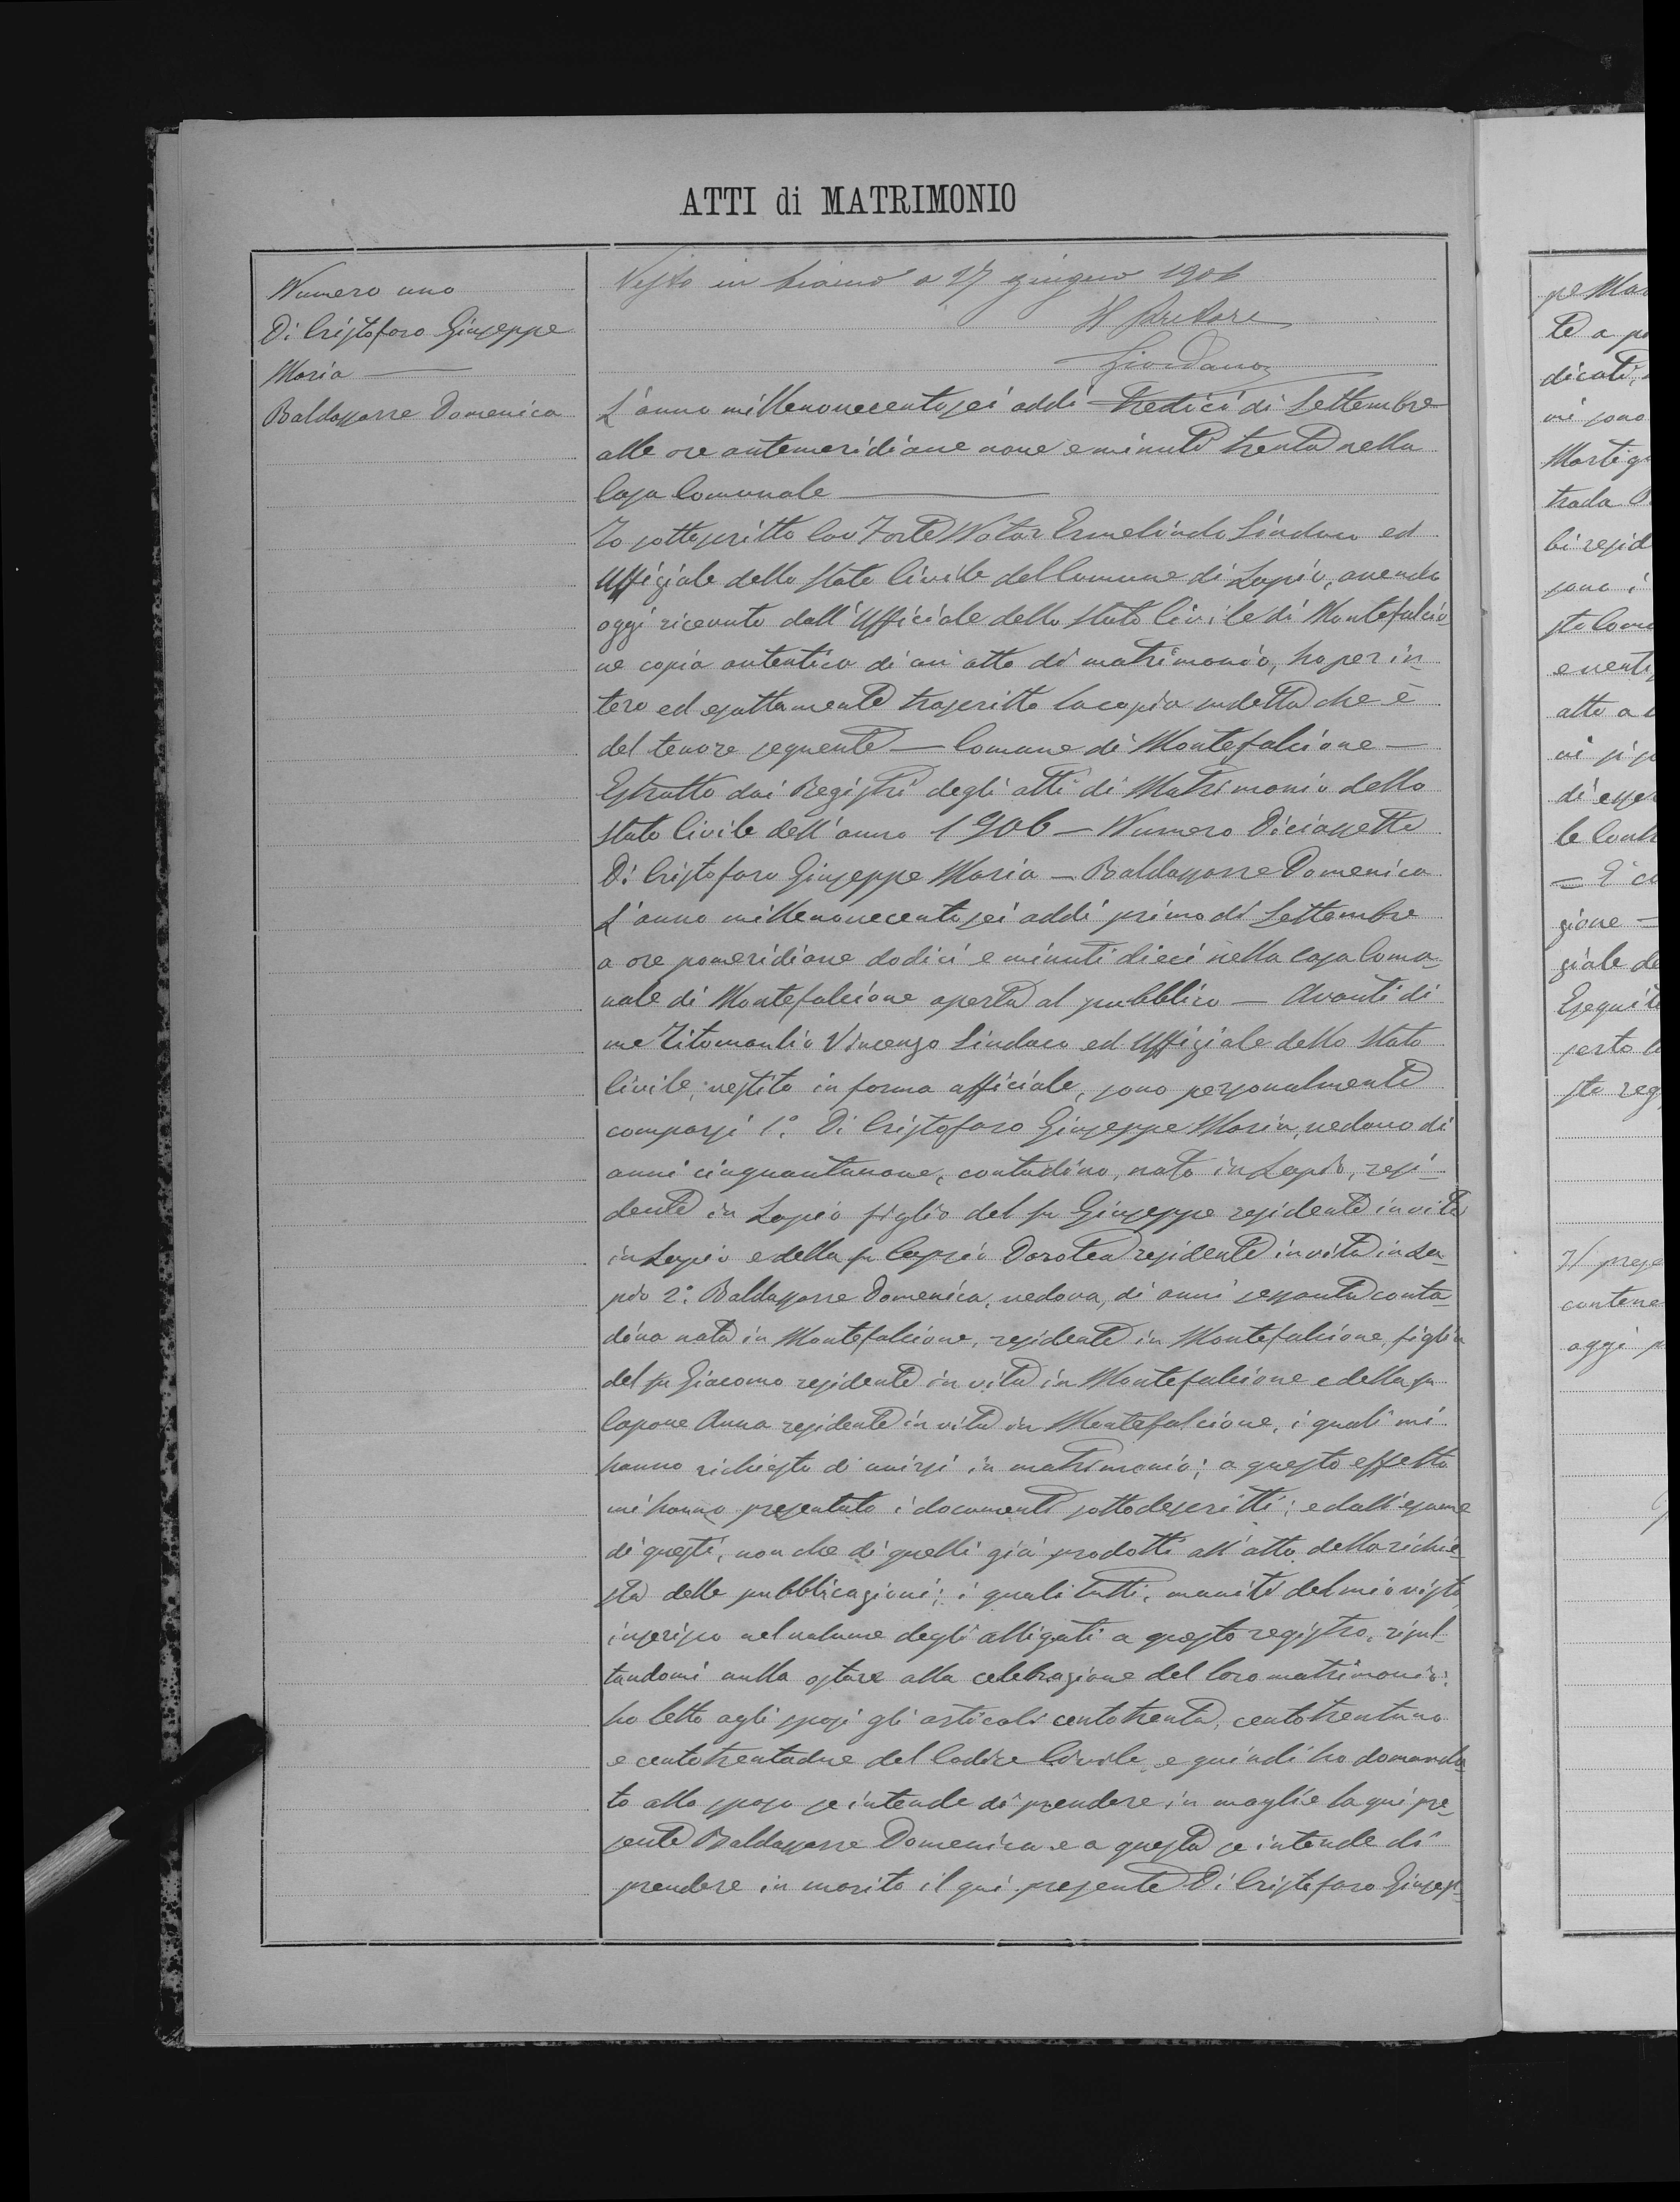 ATTI di MATRIMONIO
Numero uno
Di Cristofaro Giuseppe
Maria
Baldassarre Domenica
Visto in Chiano a 27 giugno 1906
Il Pretore
Giordano
L'anno millenovecentosei addì tredici di Settembre
alle ore antemeridiane nove e minuti trenta nella
Casa Comunale
Io sottoscritto Cav Forte Notar Ermelindo Sindaco ed
Uffiziale dello Stato Civile del Comune di Lapio, avendo
oggi ricevuto dall'Ufficiale dello Stato Civile di Montefalcio
ne copia autentica di un atto di matrimonio, ho per in-
tero ed esattamente trascritto la copia sudetta che è
del tenore seguente — Comune di Montefalcione —
Estratto dai Registri degli atti di Matrimonio dello
Stato Civile dell'anno 1906 — Numero Diciassette
Di Cristofaro Giuseppe Maria — Baldassarre Domenica
L'anno millenovecentosei addì primo di Settembre
a ore pomeridiane dodici e minuti dieci nella Casa Comu-
nale di Montefalcione aperta al pubblico — Avanti di
me Titomanlio Vincenzo Sindaco ed Uffiziale dello Stato
Civile, vestito in forma officiale, sono personalmente
comparsi 1.° Di Cristofaro Giuseppe Maria, vedovo di
anni cinquantanove, contadino, nato in Lapio, resi-
dente in Lapio figlio del fu Giuseppe residente in vita
in Lapio e della fu Carpio Dorotea residente in vita in La-
pio 2.° Baldassarre Domenica, vedova, di anni sessanta conta-
dina nata in Montefalcione, residente in Montefalcione, figlia
del fu Giacomo residente in vita in Montefalcione e della fu
Capone Anna residente in vita in Montefalcione, i quali mi
hanno richiesto di unirsi in matrimonio; a questo effetto
mi hanno presentato i documenti sottodescritti; e dall'esame
di questi, non che di quelli già prodotti all'atto della richie-
sta delle pubblicazioni; i quali tutti, muniti del mio visto,
inserisco nel volume degli alligati a questo registro, risul-
tandomi nulla ostare alla celebrazione del loro matrimonio:
ho letto agli sposi gli articoli centotrenta, centotrentuno
e centotrentadue del Codice Civile, e quindi ho domanda
to allo sposo se intende di prendere in moglie la qui pre-
sente Baldassarre Domenica e a questa se intende di
prendere in marito il qui presente Di Cristofaro Giusep-
pe Mar
te a
dicati
mi sono
trada
bi resid
sono i
sto Comu
e venti
atto a
di esser
le
gione —
ziale de
Eseguit
sto reg
Il prese
contene
oggi